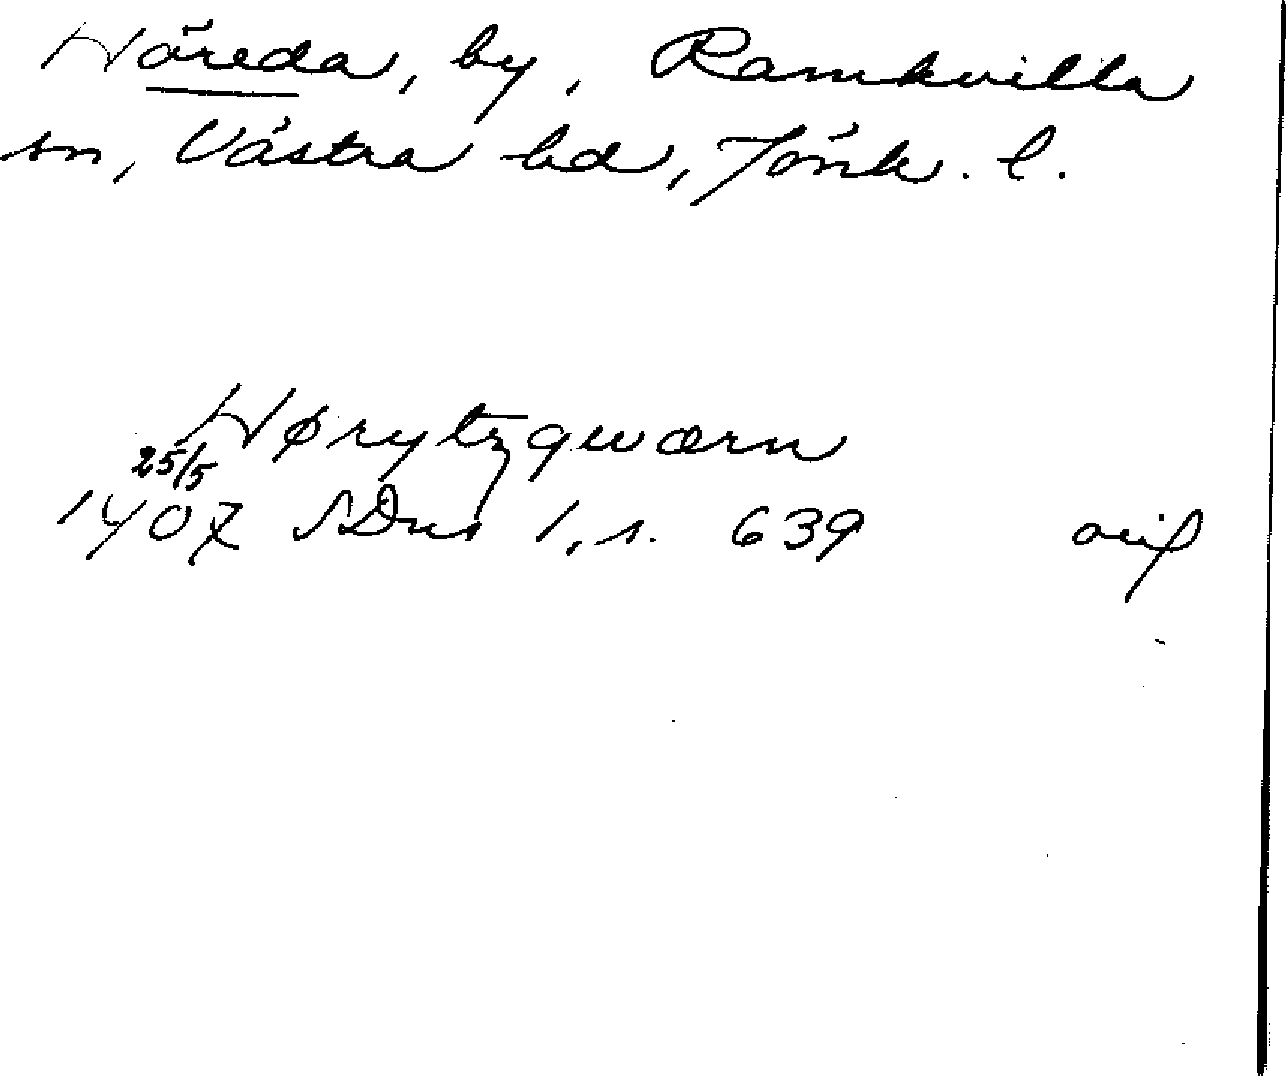 Höreda, by, Ramkvilla
sn, Västra hd, Jönk. l.
Hørytzqwærn
25/5
1407 SDns 1, s. 639 orig